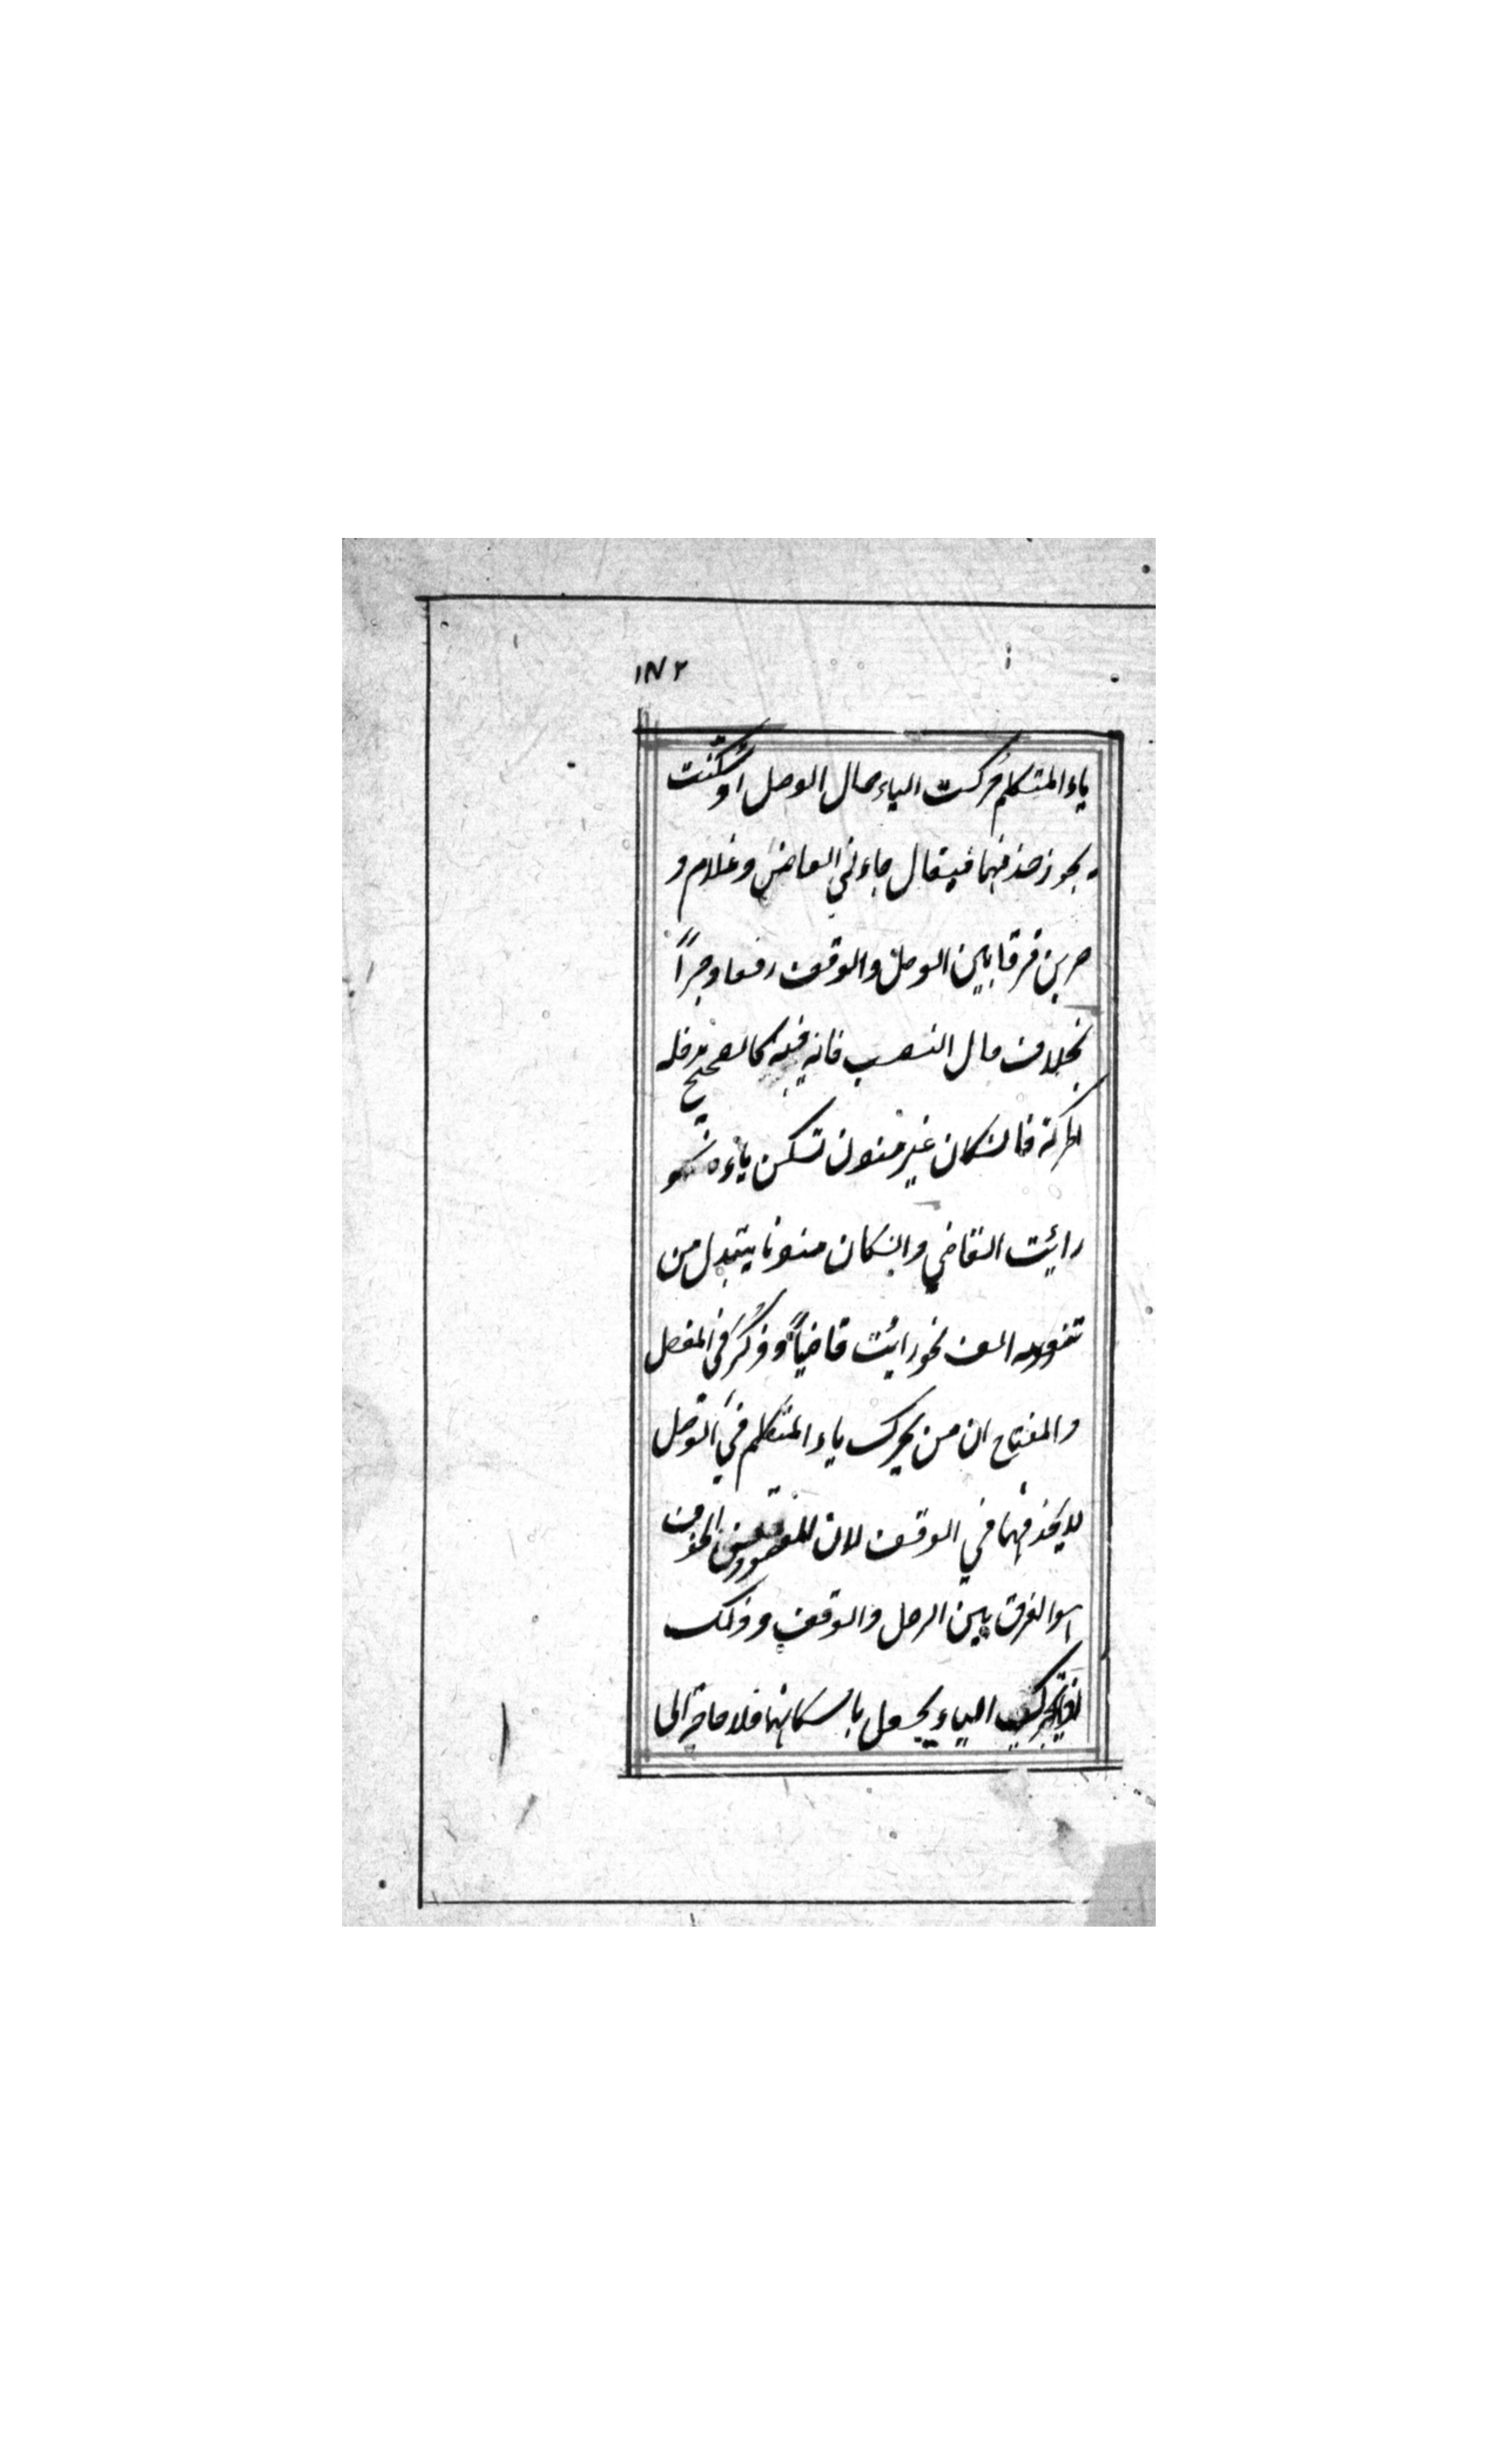 ١٨٢
ياء المتكلم حركت الياء حال الوصل او سكنت
يجوز حذفهما فيقال جاءني القاض وغلام و
ضربن فرقا بين الوصل والوقف رفعا وجراً
بخلاف حال النصب فانه فيه كالصحيح يدخله
الحركة فان كان غير منون تسكن ياءه نحو
رائيت القاضي وان كان منونا يتبدل من
تنوينه الف نحو رائيت قاضياً وذُكر في المفصل
والمفتاح ان من يحرك ياء المتكلم في الوصل
لا يحذفها في الوقف لان المقصود من الحذف
هوا لفرق بين الوصل والوقف وذلك
الياء يحصل باسكانها فلا حاجة الى